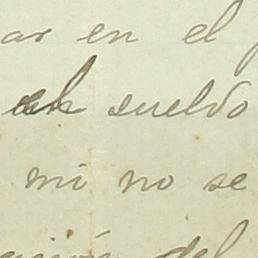 ar en el
sueldo
mi no se
ación del